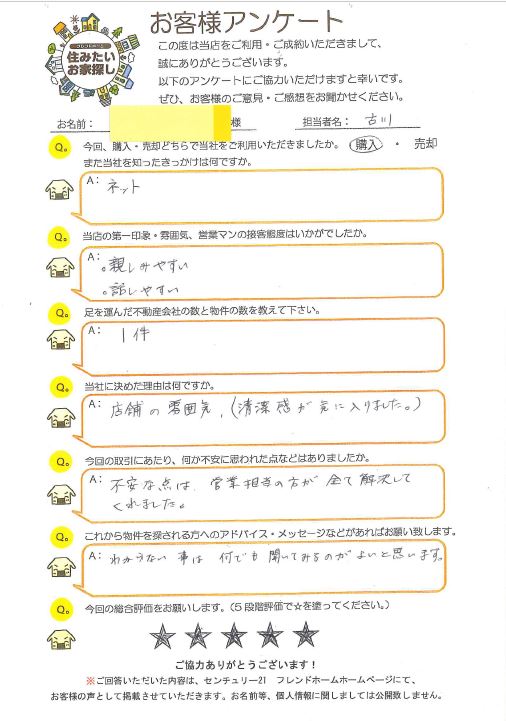 お客様アンケート
住みたい
お家探し
この度は当店をご利用・ご成約いただきまして、
誠にありがとうございます。
以下のアンケートにご協力いただけますと幸いです。
ぜひ、お客様のご意見・ご感想をお聞かせください。
お名前： 様 担当者名： 古川
Q。 今回、購入・売却どちらで当社をご利用いただきましたか。 購入 ・ 売却
また当社を知ったきっかけは何ですか。
A： ネット
Q。 当店の第一印象・雰囲気、営業マンの接客態度はいかがでしたか。
A： 。親しみやすい
。話しやすい
Q。 足を運んだ不動産会社の数と物件の数を教えて下さい。
A： 1件
Q。 当社に決めた理由は何ですか。
A： 店舗の雰囲気,(清潔感が気に入りました。)
Q。 今回の取引にあたり、何か不安に思われた点などはありましたか。
A： 不安な点は、営業担当の方が全て解決して
くれました。
Q。 これから物件を探される方へのアドバイス・メッセージなどがあればお願い致します。
A： わからない事は何でも聞いてみるのがよいと思います。
Q。 今回の総合評価をお願いします。（5段階評価で☆を塗ってください。）
ご協力ありがとうございます！
※ご回答いただいた内容は、センチュリー21 フレンドホームホームページにて、
お客様の声として掲載させていただきます。お名前等、個人情報に関しましては公開致しません。